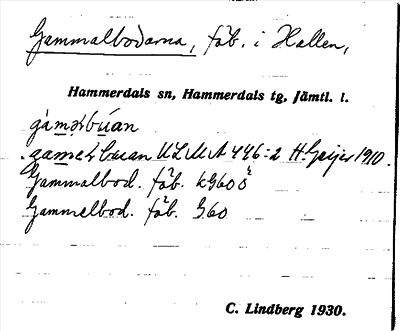 Gammalbodarna, fäb. i Hallen,
Hammerdals sn, Hammerdals tg, Jämtl. l.
ULMA 446:2 H. Geijer 1910.
Gammalbod. fäb.
Gammelbod. fäb. G60
C. Lindberg 1930.